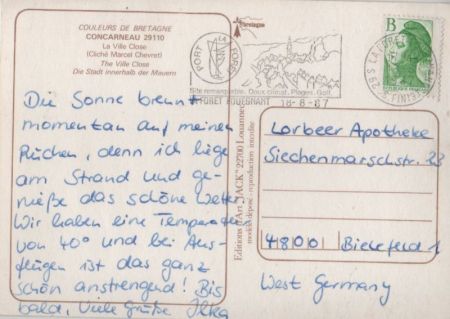 COULEURS DE BRETAGNE
CONCARNEAU 29110
La Ville Close
(Cliché Marcel Chevret)
The Ville Close
Die Stadt innerhalb der Mauern
Bretagne
PORT LA FORET
Site remarquable. Doux climat. Plages. Golf.
FORET FOUESNANT
18-8-87
B
Die Sonne brennt
momentan auf meinen
Rücken, denn ich liege
am Strand und ge-
nieße das schöne Wetter.
Wir haben eine Temperatur
von 40° und bei Aus-
flügen ist das ganz
schön anstrengend! Bis
bald, Viele Grüße Ilka
Editions d'Art "JACK" 22700 Louannec
modèle déposé - reproduction interdite
Lorbeer Apotheke
Siechenmarschstr. 23
4800 Bielefeld 1
West Germany